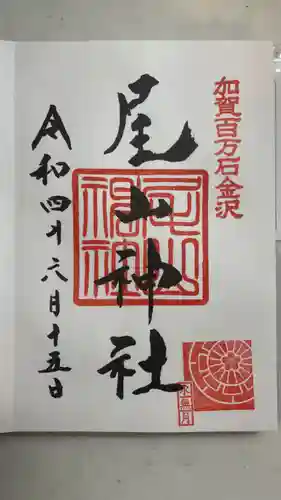 加賀百万石金沢
尾山神社
令和四年六月十五日
尾山神社
水無月